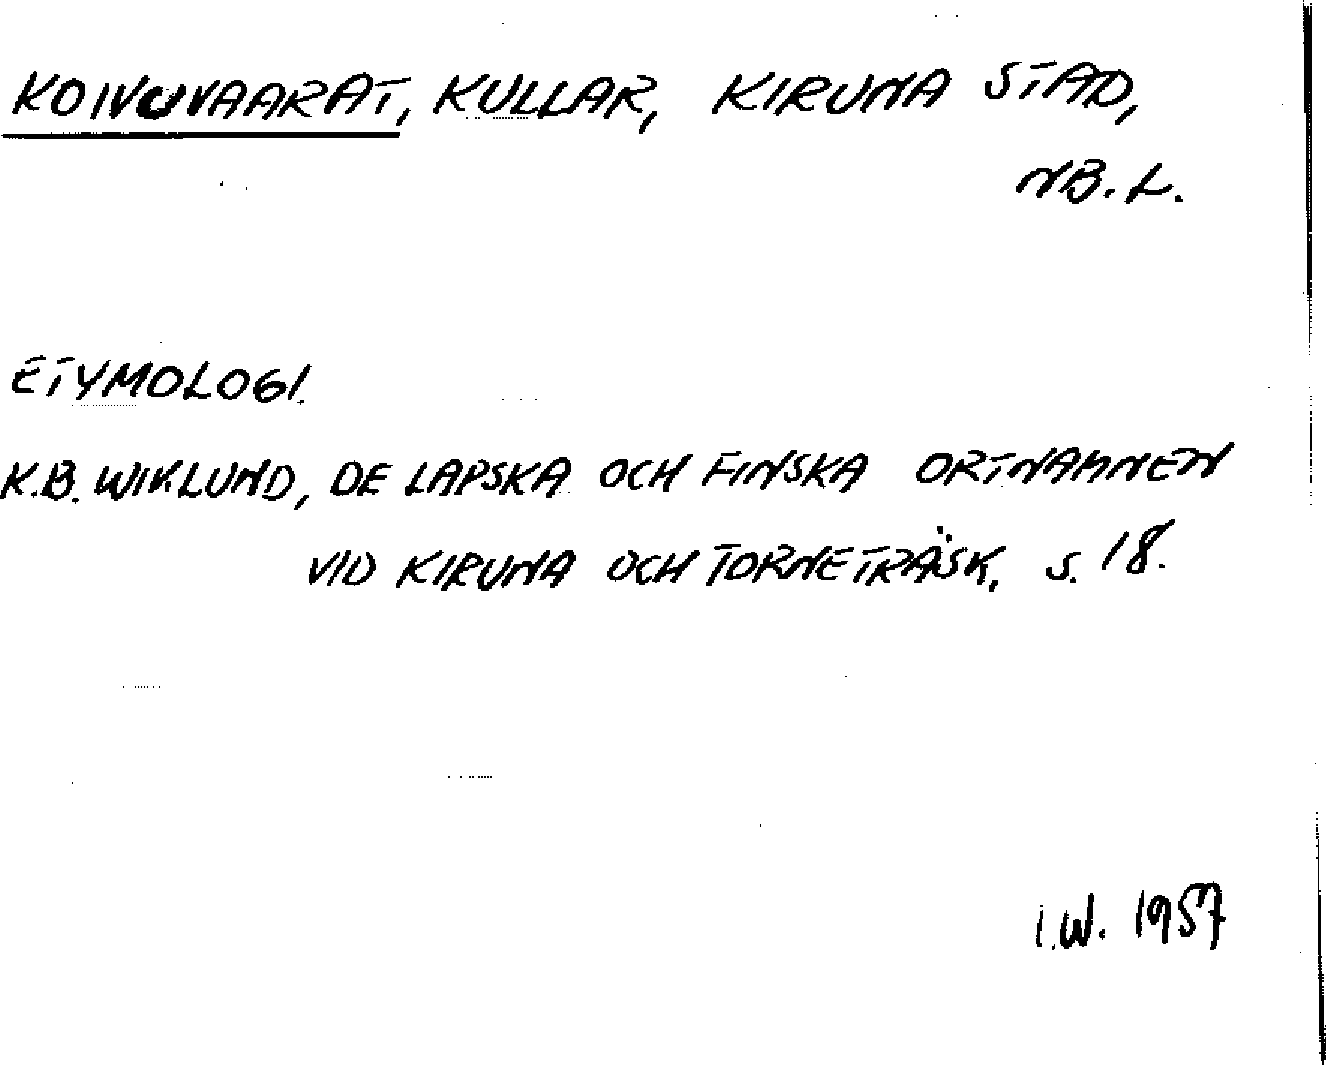 KOIVUVAARAT, KULLAR, KIRUNA STAD,
NB.L.
ETYMOLOGI.
K.B. WIKLUND, DE LAPSKA OCH FINSKA ORTNAMNEN
VID KIRUNA OCH TORNETRÄSK, S. 18.
I.W. 1957